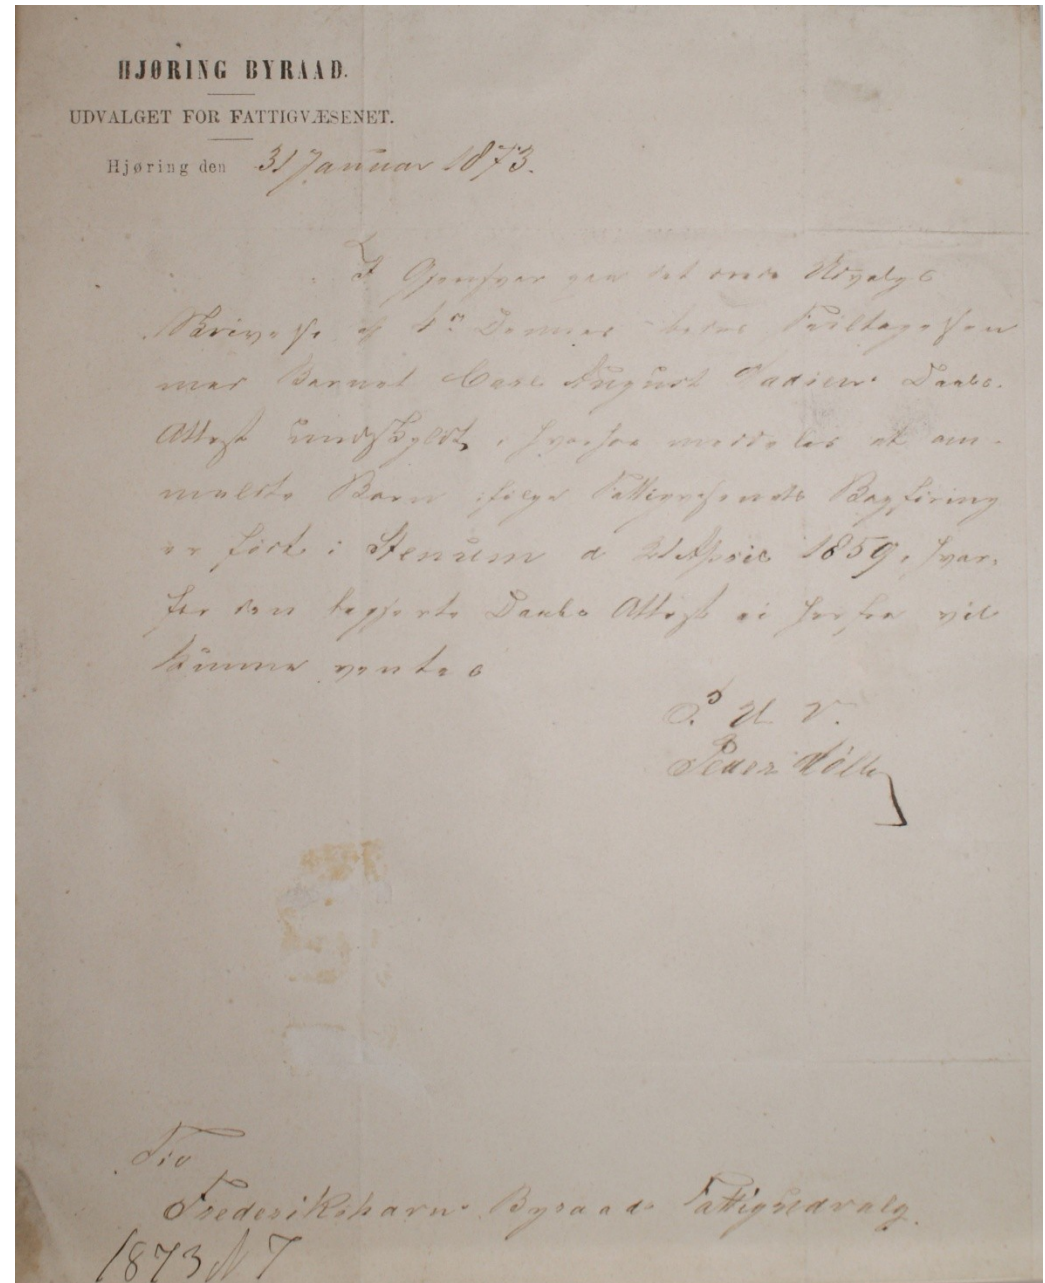 HJØRING BYRAAD.
UDVALGET FOR FATTIGVÆSENET.
Hjøring den 31 Januar 1873.
I Gjensvar paa det ærede Udvalgs
Skrivelse af 4de Dennes bedes Feiltagelsen
med Barnet Carl August Daabs
Attest undskyldt, hvorhos meddeles at om-
meldte Barn ifølge Fattigvæsenets Bogføring
er født i Stenum d 21 April 1859, hvor-
for den begjerte Daabs Attest ei herfra vil
kunne ventes
P. U. V.
Peder
Til
Frederikshavns Byraads Fattigudvalg.
1873 N 7